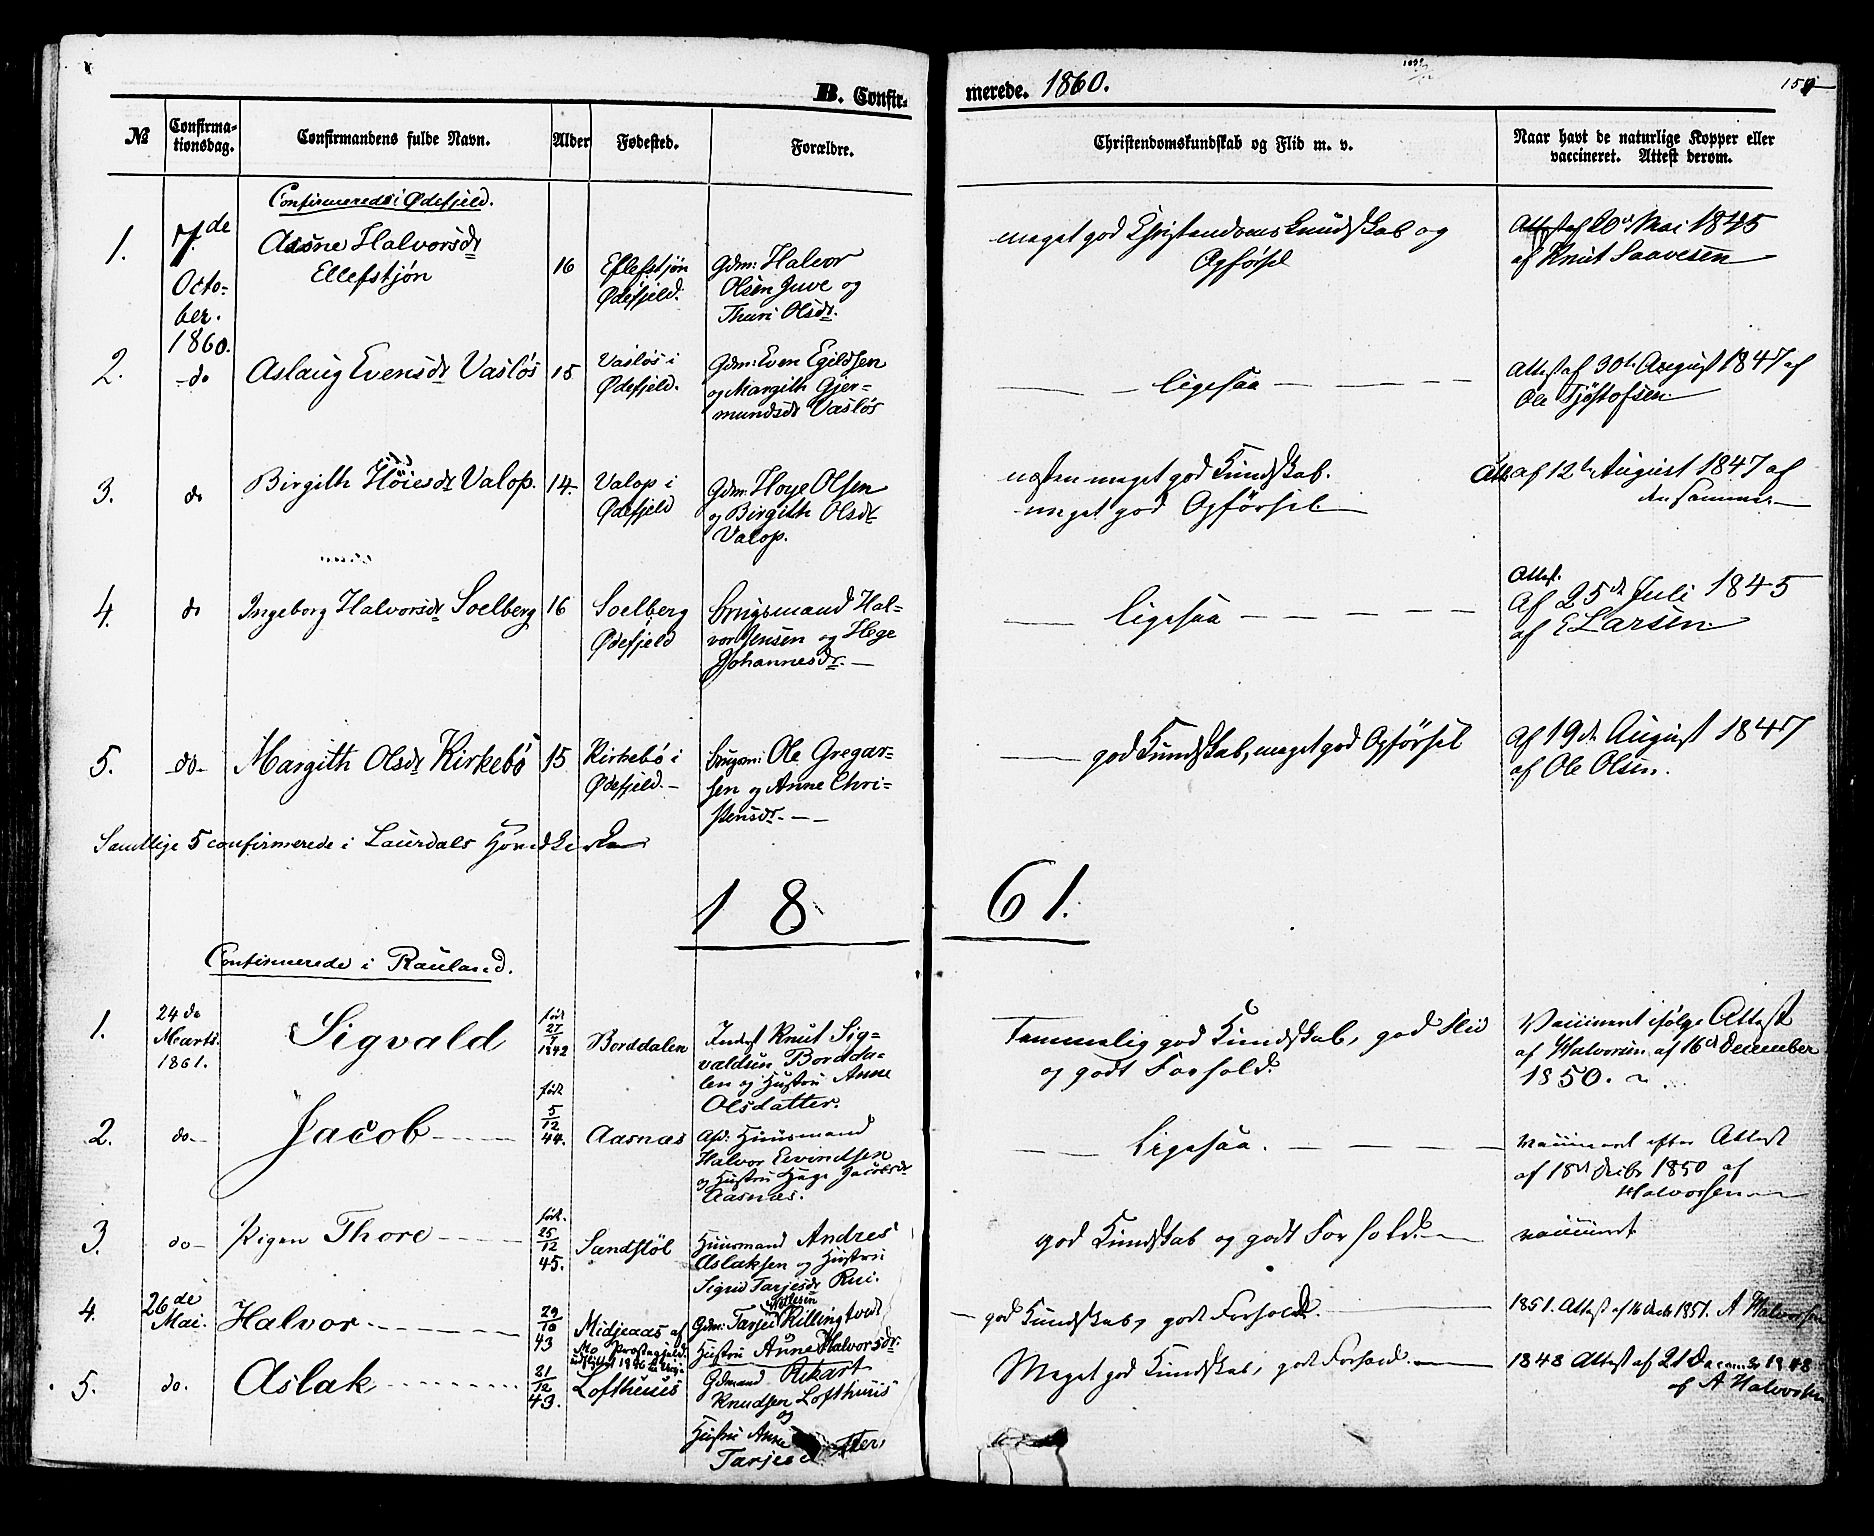 B. Confir-
merede. 1860.
159
№
Confirma-
tionsdag.
Confirmandens fulde Navn.
Alder
Fødested.
Forældre.
Christendomskundskab og Flid m. v.
Naar havt de naturlige Kopper eller
vaccineret. Attest derom.
Confirmerede i Ødefjeld.
1.
7de
Octo-
ber.
1860.
Aasne Halvorsdr
Ellefstjøn
16
Eflefstjøn
Ødefjeld.
Gdm: Halvor
Olsen Juve og
Thuri Olsdr.
meget god Christendoms Kundskab og
Opførsel
Attest af 20de Mai 1845
af Knut Saavesen
2.
-do
Aslaug Evensdr Vasløs
15
Vasløs i
Ødefjeld.
Gdm: Even Egildsen
og Margith Gjer-
mundsdr Vasløs
ligesaa
Attest af 30te August 1847 af
Ole Tjøstofsen.
3.
do
Birgith Høiesdr Valop.
14.
Valop i
Ødefjeld
Gdm: Hoye Olsen
og Birgith Olsdr
Valop.
næsten meget god Kundskab.
meget god Opførsel
Att. af 12te August 1847 af
den samme
4.
do
Ingeborg Halvorsdr Soelberg
16
Soelberg
Ødefjeld
brugsmand Hal-
vor Jensen og Hege
Johannesdr.
ligesaa
Attest.
Af 25de Juli 1845
af E Larsen.
5.
-do-
Margith Olsdr Kirkebø
15
Kirkebø i
Ødefjeld.
brugsm: Ole Gregar-
sen og Anne Chri-
stensdr.
god Kundskab, meget god Opførsel
Af 19de August 1847
af Ole Olsen.
Samtlige 5 confirmerede i Laurdals Hovedkirke
1861.
Confirmerede i Rauland.
1.
24de
Marts.
1861.
Sigvald
født
27
1842
Borddalen
Inderst Knut Sig-
valdsen Bordda-
len og Hustru Anne
Olsdatter.
Temmelig god Kundskab, god Flid
og godt Forhold.
Vaccineret ifølge Attest
af Halvorsen af 16de December
1850.
2.
do
Jacob
født
5
12
44.
Aasnæs
Afd. Huusmand
Halvor Eivindsen
og Hustru Hæge Jacobsdr
Aasnæs.
Ligesaa.
vaccineret efter Attest
af 18de Decbr 1850 af
Halvorsen
3.
do
Pigen Thore
født.
25
12
45.
Sandstøl
Huusmand Andres
Aslaksen og Hustru
Sigrid Tarjesdr Rui.
god Kundskab og godt Forhold.
vaccineret
4.
26de
Mai.
Halvor
29
10
43
Midjeaas af
Mo Præstegjeld.
Gdm: Tarjei Rillingtvedt
Hustru Anne Halvorsdr.
god Kundskab, godt Forhold.
1851. Attest af 16 Decb 1851. A Halvorsen
5.
do.
Aslak
21
12
43.
Lofthuus
Gdmand Rikart
Knudsen Lofthuus
og
Hustru Anne
Meget god Kundskab, godt Forhold.
1848 Attest af 21 December 1848
af A Halvorsen